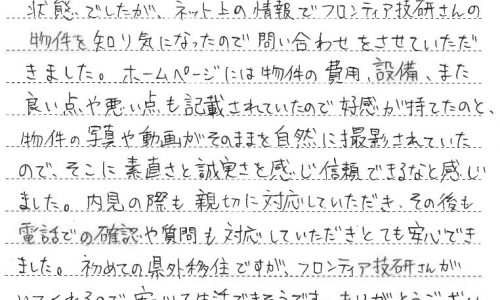 状態でしたが、ネット上の情報でフロンティア技研さんの
物件を知り気になったので問い合わせをさせていただ
きました。ホームページには物件の費用、設備、また
良い点や悪い点も記載されていたので好感が持てたのと、
物件の写真や動画がそのままを自然に撮影されていた
ので、そこに素直さと誠実さを感じ信頼できるなと感じ
ました。内見の際も親切に対応していただき、その後も
電話での確認や質問も対応していただきとても安心でき
ました。初めての県外移住ですが、フロンティア技研さんが
いてくれるので安心して生活できそうです。ありがとうござい